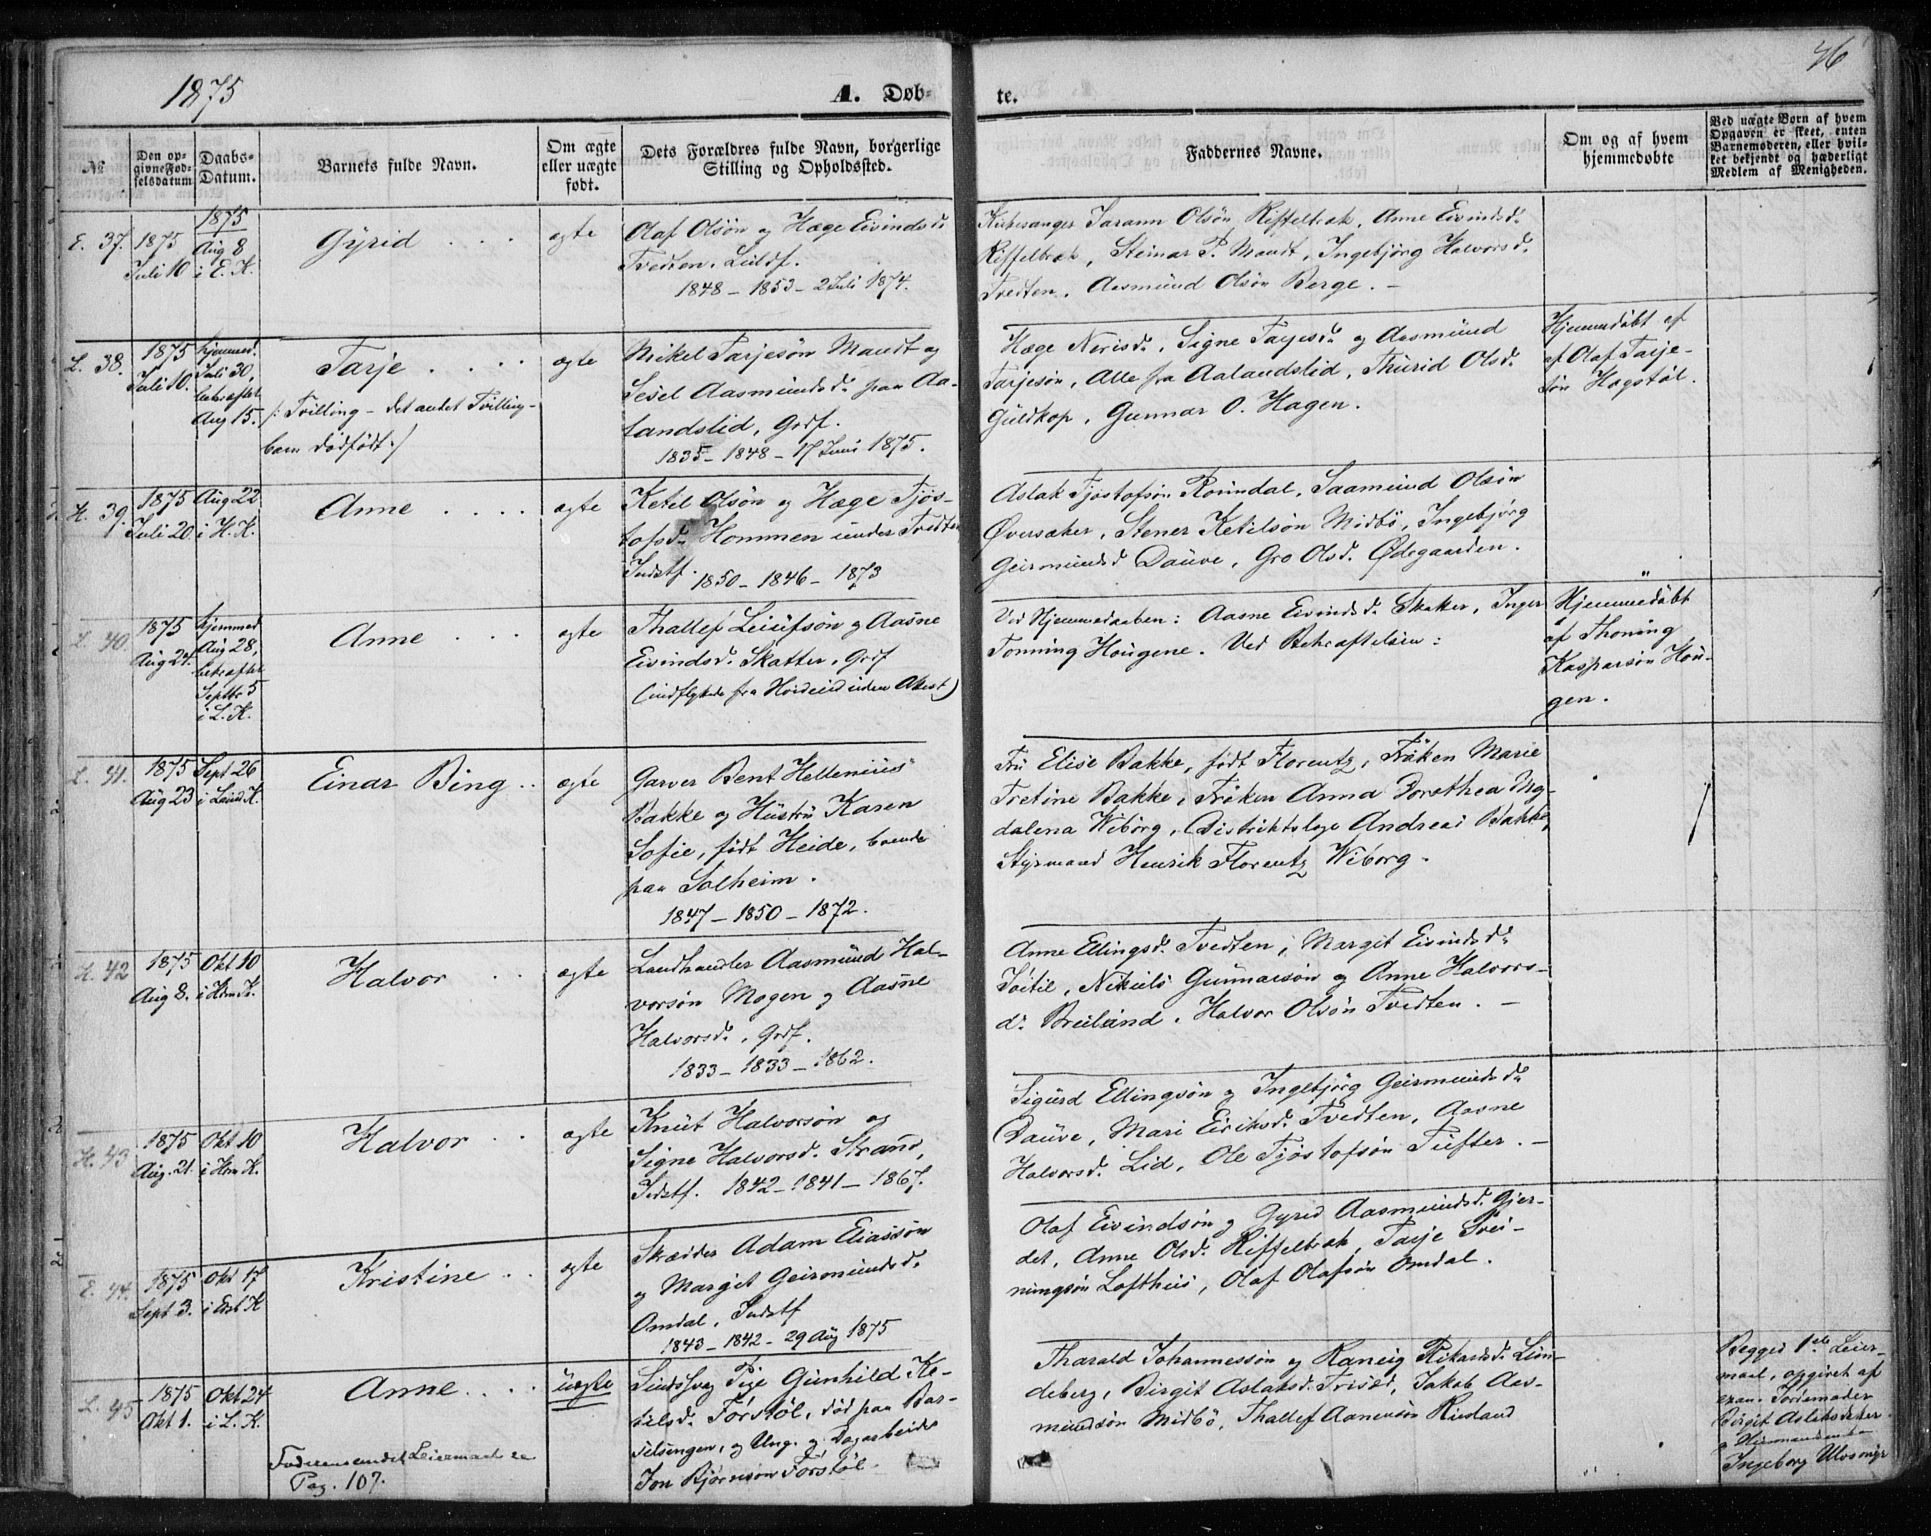 1875
A. Døb-
te.
76
№
Den op-
givne Fød-
selsdatum
Daabs-
Datum.
Barnets fulde Navn.
Om ægte
eller uægte
født.
Dets Forældres fulde Navn, borgerlige
Stilling og Opholdssted.
Faddernes Navne.
Om og af hvem
hjemmedøbte
Ved uægte Børn af hvem
Opgaven er skeet, enten
Barnemoderen, eller hvil-
ket bekjendt og hæderligt
Medlem af Menigheden.
E. 37.
1875
Juli 10
1875
Aug 8
i E. K.
Gyrid
ægte
Olaf Olsøn og Hæge Eivindsd.
Tvedten. Leildf.
1848 - 1853 - 2 Juli 1874.
Kirkesanger Olsøn Riffelbræk, Anne Eivindsd.
Riffelbræk, Steinar P. Mandt, Ingebjörg Halvorsd.
Tvedten, Aasmund Olsøn Berge. -
L. 38.
1875
Juli 10.
hjemmed.
Juli 30,
bekræftet
Aug 15.
Tarje
/: Tvilling - det andet Tvilling-
barn dødfødt :/
ægte
Mikel Tarjesøn Mandt og
Sesel Aasmundsd. paa Aa-
landslid, Grdf.
1835 - 1848 - 17 Juni 1875.
Hæge Nerisd., Signe Tarjesd. og Aasmund
Tarjesøn, Alle fra Aalandslid, Thurid Olsd.
Guldkop, Gunnar O. Hagen.
Hjemmedøbt af
af Olaf Tarje-
søn Hægstøl.
H. 39.
1875
Juli 20
Aug 22
i H. K.
Anne
ægte
Ketil Olsøn og Hæge Tjøs-
tofsd. Hommen under Tvedten
Indstf. 1850 - 1846 - 1873
Aslak Tjøstofsøn Romndal, Saamund Olsøn
Øversaker, Stener Ketilsøn Midbö, Ingebjørg
Geirmundsd Dauve, Gro Olsd. Ødegaarden.
"
L. 40.
1875
Aug 27.
hjemmed
Aug 28,
bekræftet
Septbr 5
i L. K.
Anne
ægte
Thallef Leiulfsøn og Aasne
Eivindsd. Skatter, Grdf
(indflyttede fra Hvideseid uden Attest)
Ved Hjemmedaaben: Aasne Eivindsd. Skatter, Inger
Tonning Hougene. Ved Bekræftelsen:
Hjemmedøbt
af Thoning
Kaspersøn Hou-
gen.
L. 41.
1875
Aug 23
Sept 26
i Laurd. K.
Einar Bing
ægte
Garver Bent Hellenius
Bakke og Hustru Karen
Sofie, født Heide, boende
paa Solheim.
1847 - 1850 - 1872.
Fru Elise Bakke, født Florentz, Frøken Marie
Tretine Bakke, Frøken Anna Dorothea Mag-
dalena Wiborg, Distriktslæge Andreas Bakke,
Styrmand Henrik Florentz Wiborg.
H. 42
1875
Aug 8.
Okt 10
i Hrm K.
Halvor
ægte
Landhandler Aasmund Hal-
vorsøn Mogen og Aasne
Halvorsd., Grdf.
1833 - 1833 - 1862.
Anne Ellingsd. Tvedten, Margit Eivindsd.
Nikuls Gunnarsøn og Anne Halvors-
d. Breiland. Halvor Olsøn Tvedten. -
H. 43
1875
Aug. 21.
Okt 10
i Hrm K.
Halvor
ægte
Knut Halvorsøn og
Signe Halvorsd. Strand,
Indstf. 1842 - 1841 - 1867.
Sigurd Ellingsøn og Ingebjörg Geirmundsd.
Dauve, Mari Eiriksd. Tvedten, Aasne
Halvorsd. Lid, Ole Tjøstofsøn Tufter. -
E. 44.
1875
Sept 3.
Okt 17
i Eisb K
Kristine
ægte
Skræder Adam Eliassøn
og Margit Geirmundsd.
Omdal, Indstf
1843 - 1842 - 29 Aug 1875
Olaf Eivindsøn og Gyrid Aasmundsd. Gjer-
det, Anne Olsd. Riffelbræk, Tarje Svei-
nungsøn Lofthus, Olaf Olafsøn Omdal.
L. 45
1875
Okt 1.
Okt 24
i L. K.
Anne
Faderens andet Leiermaal se
Pag. 107.
uægte
Sindssvag Pige Gunhild Ke-
tilsd. Førstøl, død paa Bar-
selsengen, og Ung. og Dagarbeider
Jon Bjørnson Førstøl
Tharald Johannessøn og Ranei Rikardsd. Lin-
deberg, Birgit Aslaksd. Trisæd, Jakob Aas-
mundsøn Midbö, Thallef Aanensøn Riusland
Begges 1ste Leier-
maal, opgivet af
exam. Jordemoder
Birgit Aslaksdatter
Ingeborg